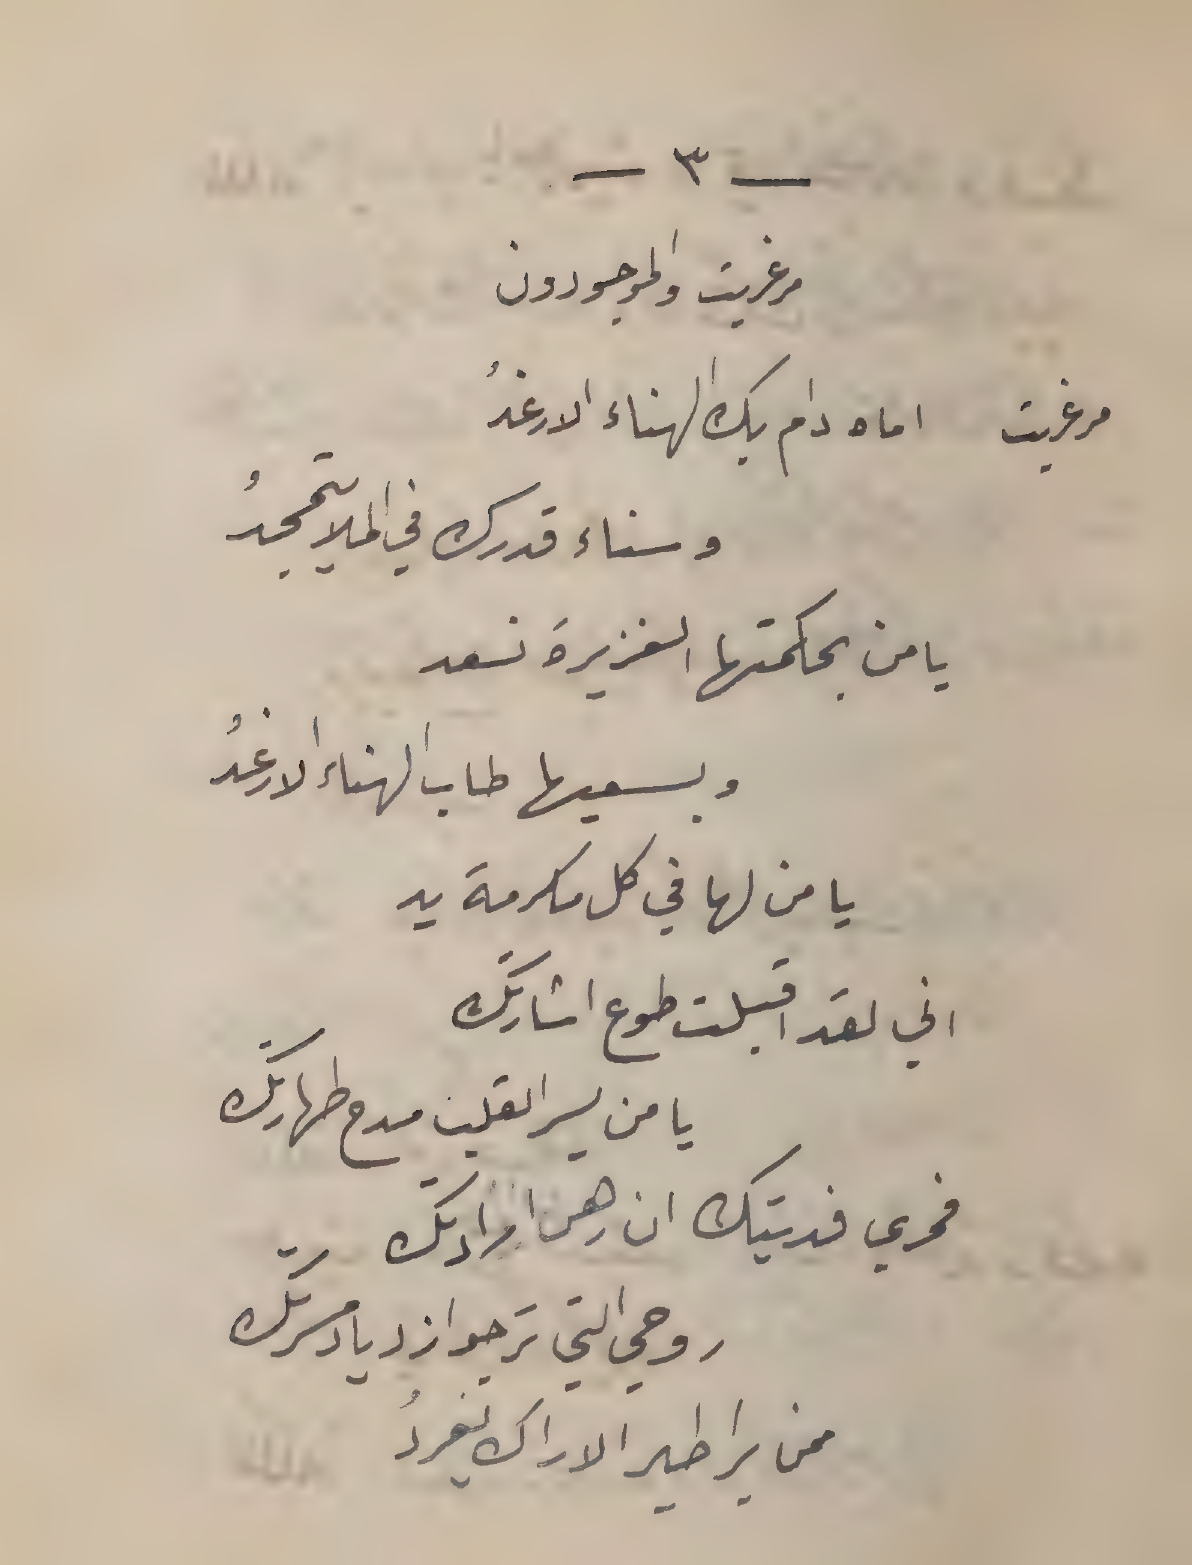 — ٣ —
مرغريت والموجودون
مرغريت اماه دام بك الهناء الارغدُ
وسناء قدرك في الملا يتمجدُ
يا من بحكمتها الغزيرة نسعد
وبسعيها طاب الهناء الارغدُ
يا من لها في كل مكرمة يد
اني لقد اقبلت طوع اشارتك
يا من يسر القلب مدح طهارتك
فمري فديتك ان رهن ارادتك
روحي التي ترجو ازدياد مسرتك
طير الاراك يغردُ